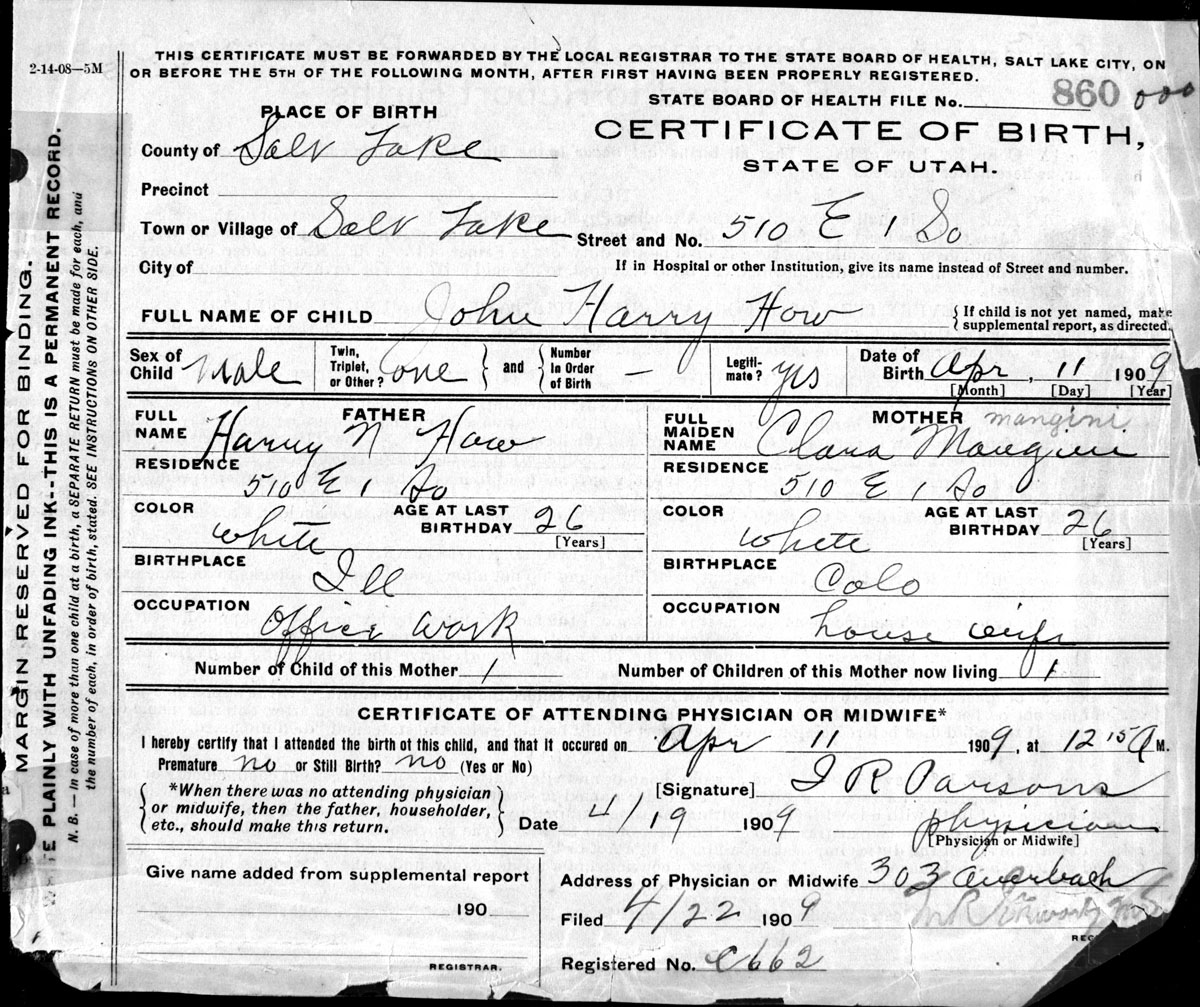 2-14-08—5M
THIS CERTIFICATE MUST BE FORWARDED BY THE LOCAL REGISTRAR TO THE STATE BOARD OF HEALTH, SALT LAKE CITY, ON
OR BEFORE THE 5TH OF THE FOLLOWING MONTH, AFTER FIRST HAVING BEEN PROPERLY REGISTERED.
STATE BOARD OF HEALTH FILE No. 860 000
PLACE OF BIRTH
CERTIFICATE OF BIRTH,
STATE OF UTAH.
County of Salt Lake
Precinct
Town or Village of Salt Lake Street and No. 510 E 1 So
City of
If in Hospital or other Institution, give its name instead of Street and number.
FULL NAME OF CHILD John Harry How { If child is not yet named, make
supplemental report, as directed.
Sex of Child Male Twin, Triplet, or Other? one } and { Number In Order of Birth — Legiti- mate? yes Date of Birth Apr, 11 1909
[Month] [Day] [Year]
FATHER
FULL NAME Harry N How
RESIDENCE
510 E 1 So
COLOR white AGE AT LAST BIRTHDAY 26
[Years]
BIRTHPLACE Ill
OCCUPATION Office work
MOTHER mangini
FULL MAIDEN NAME Clara Mangini
RESIDENCE
510 E 1 So
COLOR white AGE AT LAST BIRTHDAY 26
[Years]
BIRTHPLACE Colo
OCCUPATION house wife
Number of Child of this Mother 1 Number of Children of this Mother now living 1
CERTIFICATE OF ATTENDING PHYSICIAN OR MIDWIFE*
I hereby certify that I attended the birth ot this child, and that it occured on Apr 11 1909, at 12 15 A M.
Premature no or Still Birth? no (Yes or No)
{ *When there was no attending physician
or midwife, then the father, householder,
etc., should make this return. }
[Signature] I R Parsons
Date 4/19 1909 physician
[Physician or Midwife]
Give name added from supplemental report
190
REGISTRAR.
Address of Physician or Midwife 303 Auerbach
Filed 4/22 1909
REC
Registered No. C662
MARGIN RESERVED FOR BINDING.
PLAINLY WITH UNFADING INK--THIS IS A PERMANENT RECORD.
N. B. — In case of more than one child at a birth, a SEPARATE RETURN must be made for each, and
the number of each, in order of birth, stated. SEE INSTRUCTIONS ON OTHER SIDE.